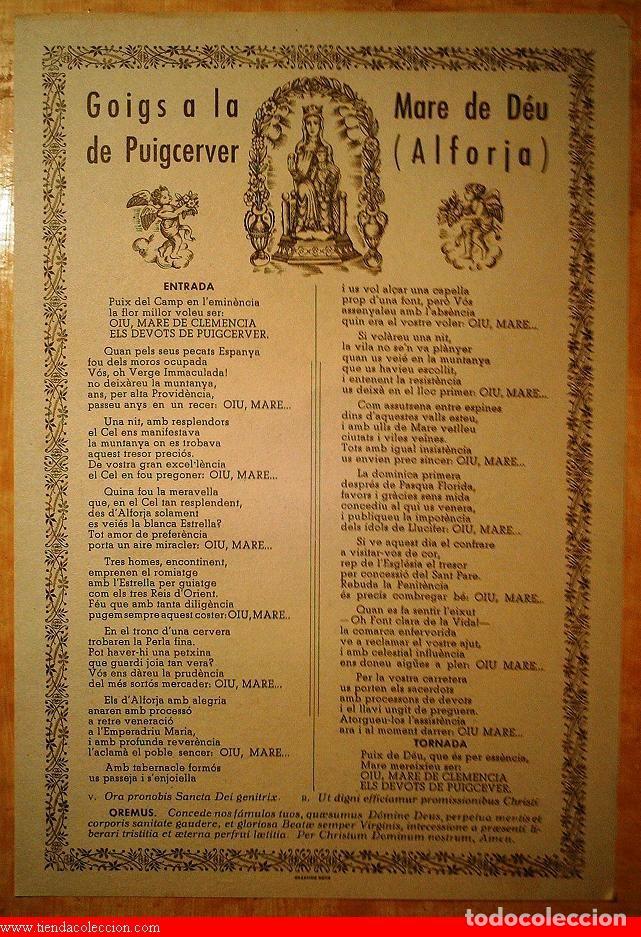 Goigs a la Mare de Déu
de Puigcerver (Alforja)
ENTRADA
Puix del Camp en l'eminència
la flor millor voleu ser:
OIU, MARE DE CLEMENCIA
ELS DEVOTS DE PUIGCERVER.
Quan pels seus pecats Espanya
fou dels moros ocupada
Vós, oh Verge Immaculada!
no deixàreu la muntanya,
ans, per alta Providència,
passeu anys en un recer: OIU, MARE...
Una nit, amb resplendors
el Cel ens manifestava
la muntanya on es trobava
aquest tresor preciós.
De vostra gran excel·lència
el Cel en fou pregoner: OIU, MARE...
Quina fou la meravella
que, en el Cel tan resplendent,
des d'Alforja solament
es veiés la blanca Estrella?
Tot amor de preferència
porta un aire miracler: OIU, MARE...
Tres homes, encontinent,
emprenen el romiatge
amb l'Estrella per guiatge
com els tres Reis d'Orient.
Féu que amb tanta diligència
pugem sempre aquest coster: OIU, MARE..
En el tronc d'una cervera
trobaren la Perla fina.
Pot haver-hi una petxina
que guardi joia tan vera?
Vós ens dàreu la prudència
del més sortós mercader: OIU, MARE...
Els d'Alforja amb alegria
anaren amb processó
a retre veneració
a l'Emperadriu Maria,
i amb profunda reverència
l'aclamà el poble sencer: OIU, MARE...
Amb tabernacle formós
us passeja i s'enjoiella
i us vol alçar una capella
prop d'una font, però Vós
assenyaleu amb l'absència
quin era el vostre voler: OIU, MARE...
Si volàreu una nit,
la vila no se'n va plànyer
quan us veié en la muntanya
que us havieu escollit,
i entenent la resistència
us deixà en el lloc primer: OIU, MARE...
Com assutsena entre espines
dins d'aquestes valls esteu,
i amb ulls de Mare vetlleu
ciutats i viles veïnes.
Tots amb igual insistència
us envien prec sincer: OIU, MARE...
La dominica primera
després de Pasqua Florida,
favors i gràcies sens mida
concediu al qui us venera,
i publiqueu la impotència
dels ídols de Llucifer: OIU, MARE...
Si ve aquest dia el confrare
a visitar-vos de cor,
rep de l'Església el tresor
per concessió del Sant Pare.
Rebuda la Penitència
és precís combregar bé: OIU, MARE...
Quan es fa sentir l'eixut
—Oh Font clara de la Vida!—
la comarca enfervorida
ve a reclamar el vostre ajut,
i amb celestial influència
ens doneu aigües a pler: OIU, MARE...
Per la vostra carretera
us porten els sacerdots
amb processons de devots
i el llavi ungit de preguera.
Atorgueu-los l'assistència
ara i al moment darrer: OIU MARE...
TORNADA
Puix de Déu, que és per essència,
Mare mereixieu ser:
OIU, MARE DE CLEMENCIA
ELS DEVOTS DE PUIGCEVER.
V. Ora pronobis Sancta Dei genitrix. R. Ut digni efficiamur promissionibus Christi
OREMUS. Concede nos fámulos tuos, quæsumus Dómine Deus, perpetua mentis et
corporis sanitate gaudere, et gloriosa Beatæ semper Virginis, intercessione a præsenti li-
berari tristitia et æterna perfrui lætitia. Per Christum Dominum nostrum, Amen.
www.tiendacoleccion.com
todocoleccion